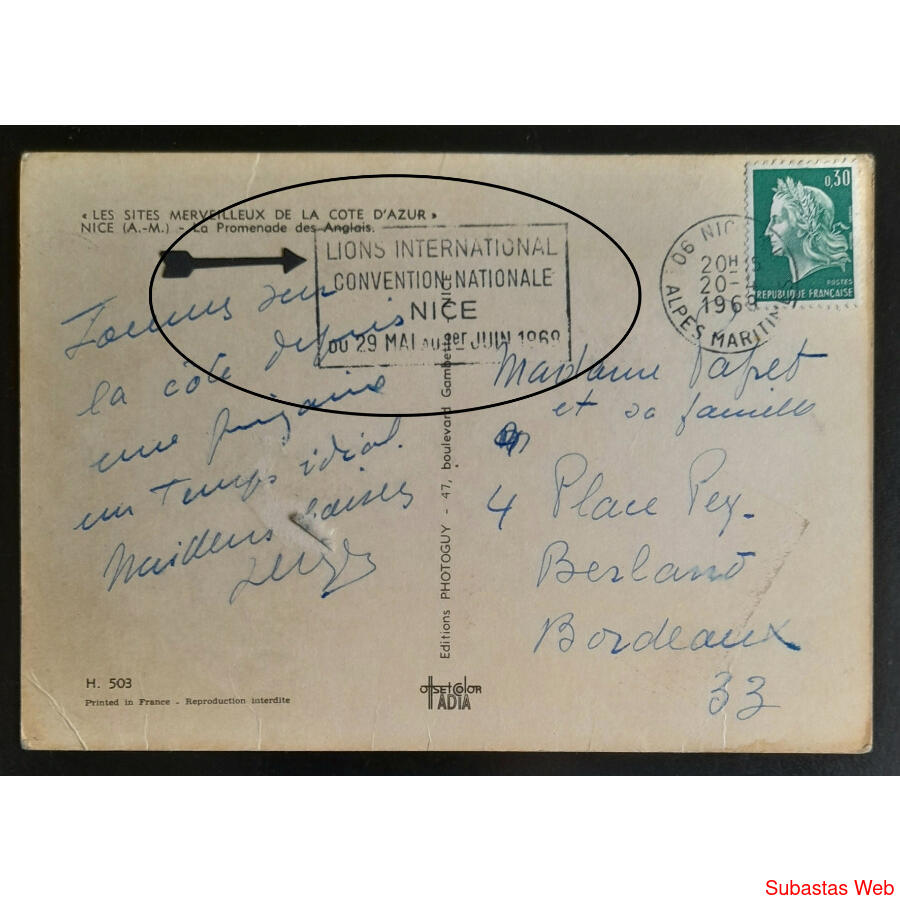 « LES SITES MERVEILLEUX DE LA COTE D'AZUR »
NICE (A.-M.) - La Promenade des Anglais.
LIONS INTERNATIONAL
CONVENTION NATIONALE
NICE
DU 29 MAI AU 1er JUIN 1969
06 NICE
20H
20-
1969
ALPES MARITIMES
0,30
POSTES
REPUBLIQUE FRANÇAISE
sur
la côte depuis
une
un temps idéal.
baisers
Editions PHOTOGUY - 47, boulevard Gambetta NICE
Madame
et sa famille
4 Place Pey-
Berland
Bordeaux
33
H. 503
Printed in France - Reproduction interdite
offsetcolor
IADIA
Subastas Web